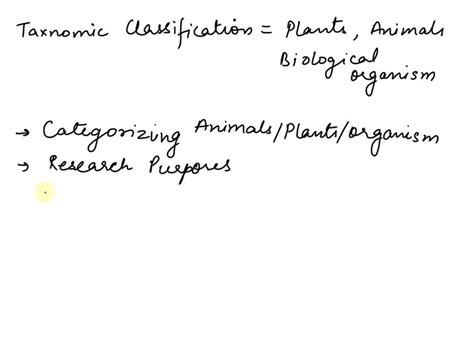 Taxnomic Classification = Plants, Animals
Biological
organism
→ Categorizing Animals/Plants/organism
→ Research Purpores